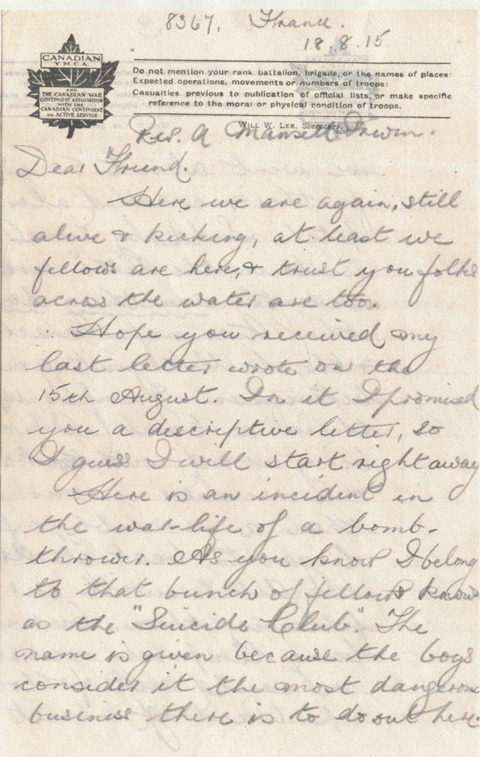 8367, France.
18.8.15.
CANADIAN
Y.M.C.A.
AND THE CANADIAN WAR
CONTINGENT ASSOCIATION
WITH THE
CANADIAN CONTINGENT
ON ACTIVE SERVICE
Do not mention your rank, battalion, brigade, or the names of places:
Expected operations, movements or numbers of troops:
Casualties, previous to publication of official lists, or make specific
reference to the moral or physical condition of troops.
WILL W. LEE, Secretary
Rev. A Mansell Irwin.
Dear Friend.
Here we are again, still
alive & kicking, at least we
fellows are here, & trust you folks
across the water are too.
Hope you received my
last letter wrote on the
15th August. In it I promised
you a descriptive letter, so
I guess I will start right away
Here is an incident in
the war-life of a bomb-
thrower. As you know I belong
to that bunch of fellows known
as the "Suicide Club". The
name is given because the boys
consider it the most dangerous
business there is to do out here.